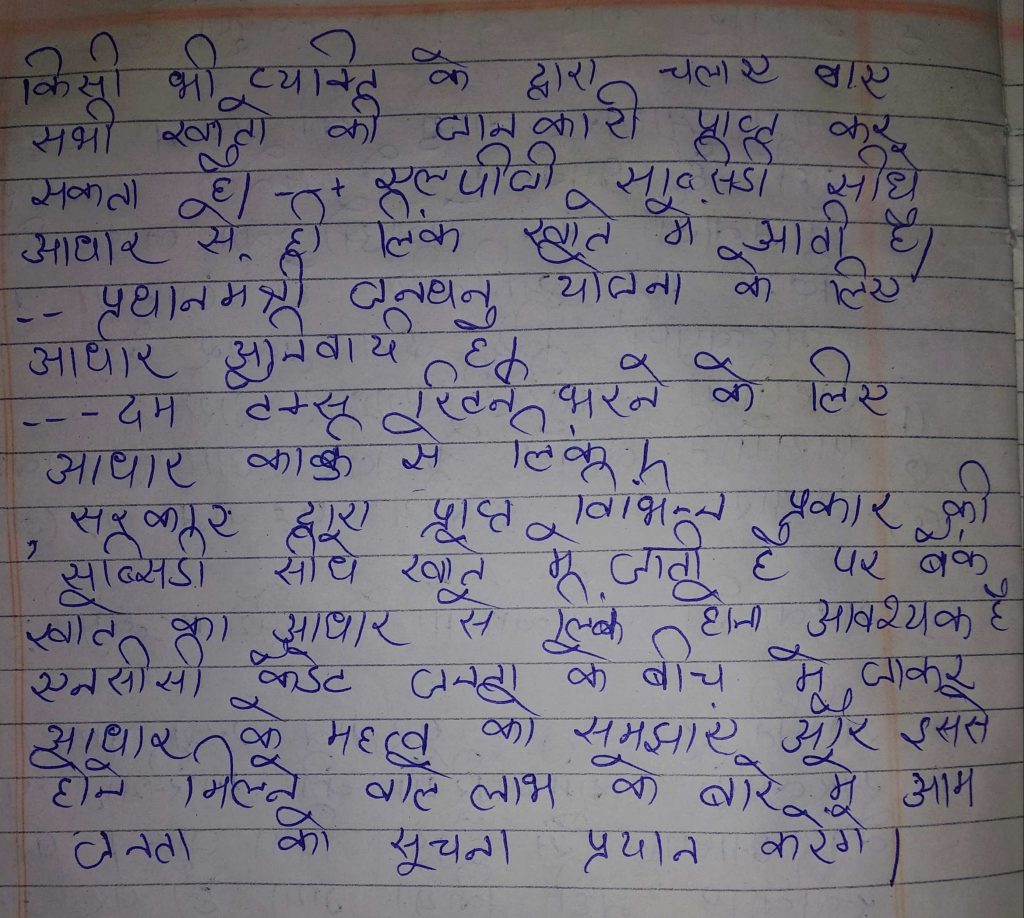 किसी भी व्यक्ति के द्वारा चलाए गए
सभी खातो की जानकारी प्राप्त कर
सकता है। --+ एलपीजी सब्सिडी सीधे
आधार से ही लिंक खाते में आती है।
-- प्रधानमंत्री जनधन योजना के लिए
आधार अनिवार्य है।
--- टैक्स रिटर्न भरने के लिए
आधार कार्ड से लिंक
, सरकार द्वारा प्राप्त विभिन्न प्रकार की
सब्सिडी सीधे खाते में जाती है पर बैंक
खाते का आधार से लिंक होना आवश्यक है
एनसीसी कैडेट जनता के बीच में जाकर
आधार के महत्व को समझाए और इससे
होने मिलने वाले लाभ के बारे में आम
जनता को सूचना प्रयान करेगे।